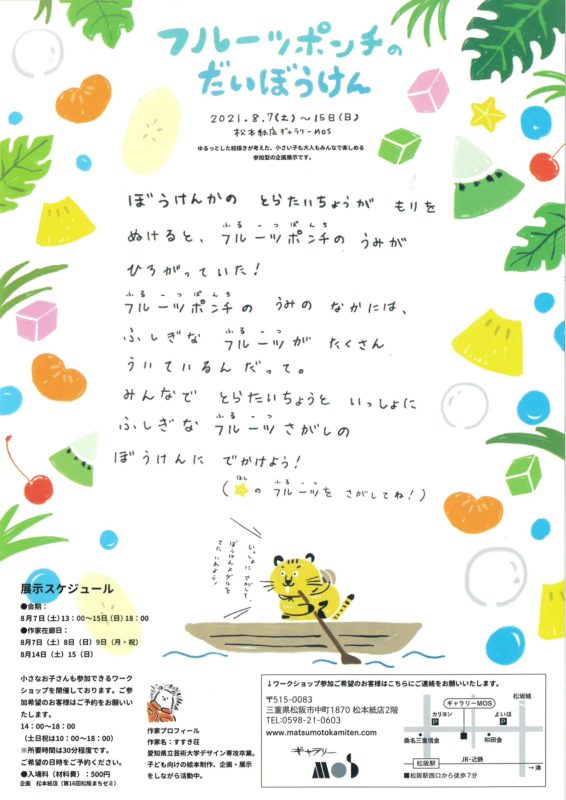 フルーツポンチの
だいぼうけん
2021.8.7(土)～15日(日)
松本紙店ギャラリーMOS
ゆるっとした絵描きが考えた、小さい子も大人もみんなで楽しめる
参加型の企画展示です。
ぼうけんかの とらたいちょうが もりを
ぬけると、フルーツポンチの うみが
ふるーつぽんち
ひろがっていた！
フルーツポンチの うみの なかには、
ふるーつぽんち
ふしぎな フルーツが たくさん
ふるーつ
ういているんだって。
みんなで とらたいちょうと いっしょに
ふしぎな フルーツさがしの
ふるーつ
ぼうけんに でかけよう！
(★の フルーツを さがしてね！)
ほし ふるーつ
いっしょに さがして、
ぼうけんメダルを
てに いれよう！
展示スケジュール
●会期：
8月7日(土)13：00～15日(日)18：00
●作家在廊日：
8月7日（土）8日（日）9日（月・祝）
8月14日（土）15（日）
小さなお子さんも参加できるワーク
ショップを開催しております。ご参
加希望のお客様はご予約をお願いい
たします。
14：00～18：00
（土日祝は10：00～18：00）
※所要時間は30分程度です。
ご希望の日時をご予約ください。
●入場料（材料費）：500円
企画 松本紙店（第16回松阪まちゼミ）
作家プロフィール
作家名：すすき荘
愛知県立芸術大学デザイン専攻卒業。
子ども向けの絵本制作、企画・展示
をしながら活動中。
↓ワークショップ参加ご希望のお客様はこちらにご連絡をお願いいたします。
〒515-0083
三重県松阪市中町1870 松本紙店2階
TEL:0598-21-0603
www.matsumotokamiten.com
ギャラリー
mos
ギャラリーMOS
松坂城
カリヨン
P
よいほ
P
桑名三重信金
和田金
松阪駅
JR・近鉄
→津
■松阪駅西口から徒歩7分